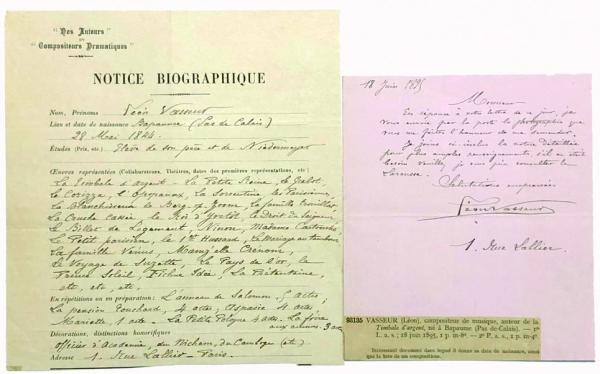 "Nos Auteurs
et
Compositeurs Dramatiques"
NOTICE BIOGRAPHIQUE
Nom, Prénoms Léon Vasseur
Lieu et date de naissance Bapaume (Pas de Calais)
28 Mai 1844
Études (Prix, etc) Élève de son père et de Niedermeyer
Œuvres représentées (Collaborateurs, Théâtres, dates des premières représentations, etc)
La Timbale d'argent, la Petite Reine, le Grelot,
Le Opoponax, La Sorrentine, la Parisienne,
La Blanchisseuse de Berg op Zoom, la famille Trouillat
La Cruche cassée, le Roi d'Yvetot, le Droit du Seigneur,
Le Billet de Logement, Ninon, Madame Cartouche,
Le Petit parisien, le 1er Hussard, Le Mariage au tambour
La famille Vénus, Mam'zelle Crénom,
Le Voyage de Suzette, Le Pays de l'or, le
Prince Soleil, La Prétentaine,
etc, etc, etc.
En répétitions et en préparation: L'anneau de Salomon, 5 actes,
La pension 4 actes, Aspasie 4 actes
Mariette 1 acte - La Petite Pologne 4 actes. La foire
3 actes
Décorations, distinctions honorifiques
officier d'Académie, du Nicham, du Cambodge (etc)
Adresse 1. Rue Lallier - Paris.
18 Juin 1895
Monsieur
En réponse à votre lettre de ce jour, je
vous envoie par la poste la photographie que
vous me faites l'honneur de me demander.
Je joins ci inclus la notice détaillée
pour plus amples renseignements, s'il en était
besoin veuillez, je vous prie consulter le
Larousse.
Salutations empressées
Léon Vasseur
1. Rue Lallier
93135 VASSEUR (Léon), compositeur de musique, auteur de la
Timbale d'argent, né à Bapaume (Pas-de-Calais). — 1º
L. a. s.; 18 juin 1895, 1 p. in-8º. — 2º P. a. s., 1 p. in-4º.
Intéressant document dans lequel il donne sa date de naissance, ainsi
que la liste de ses compositions.